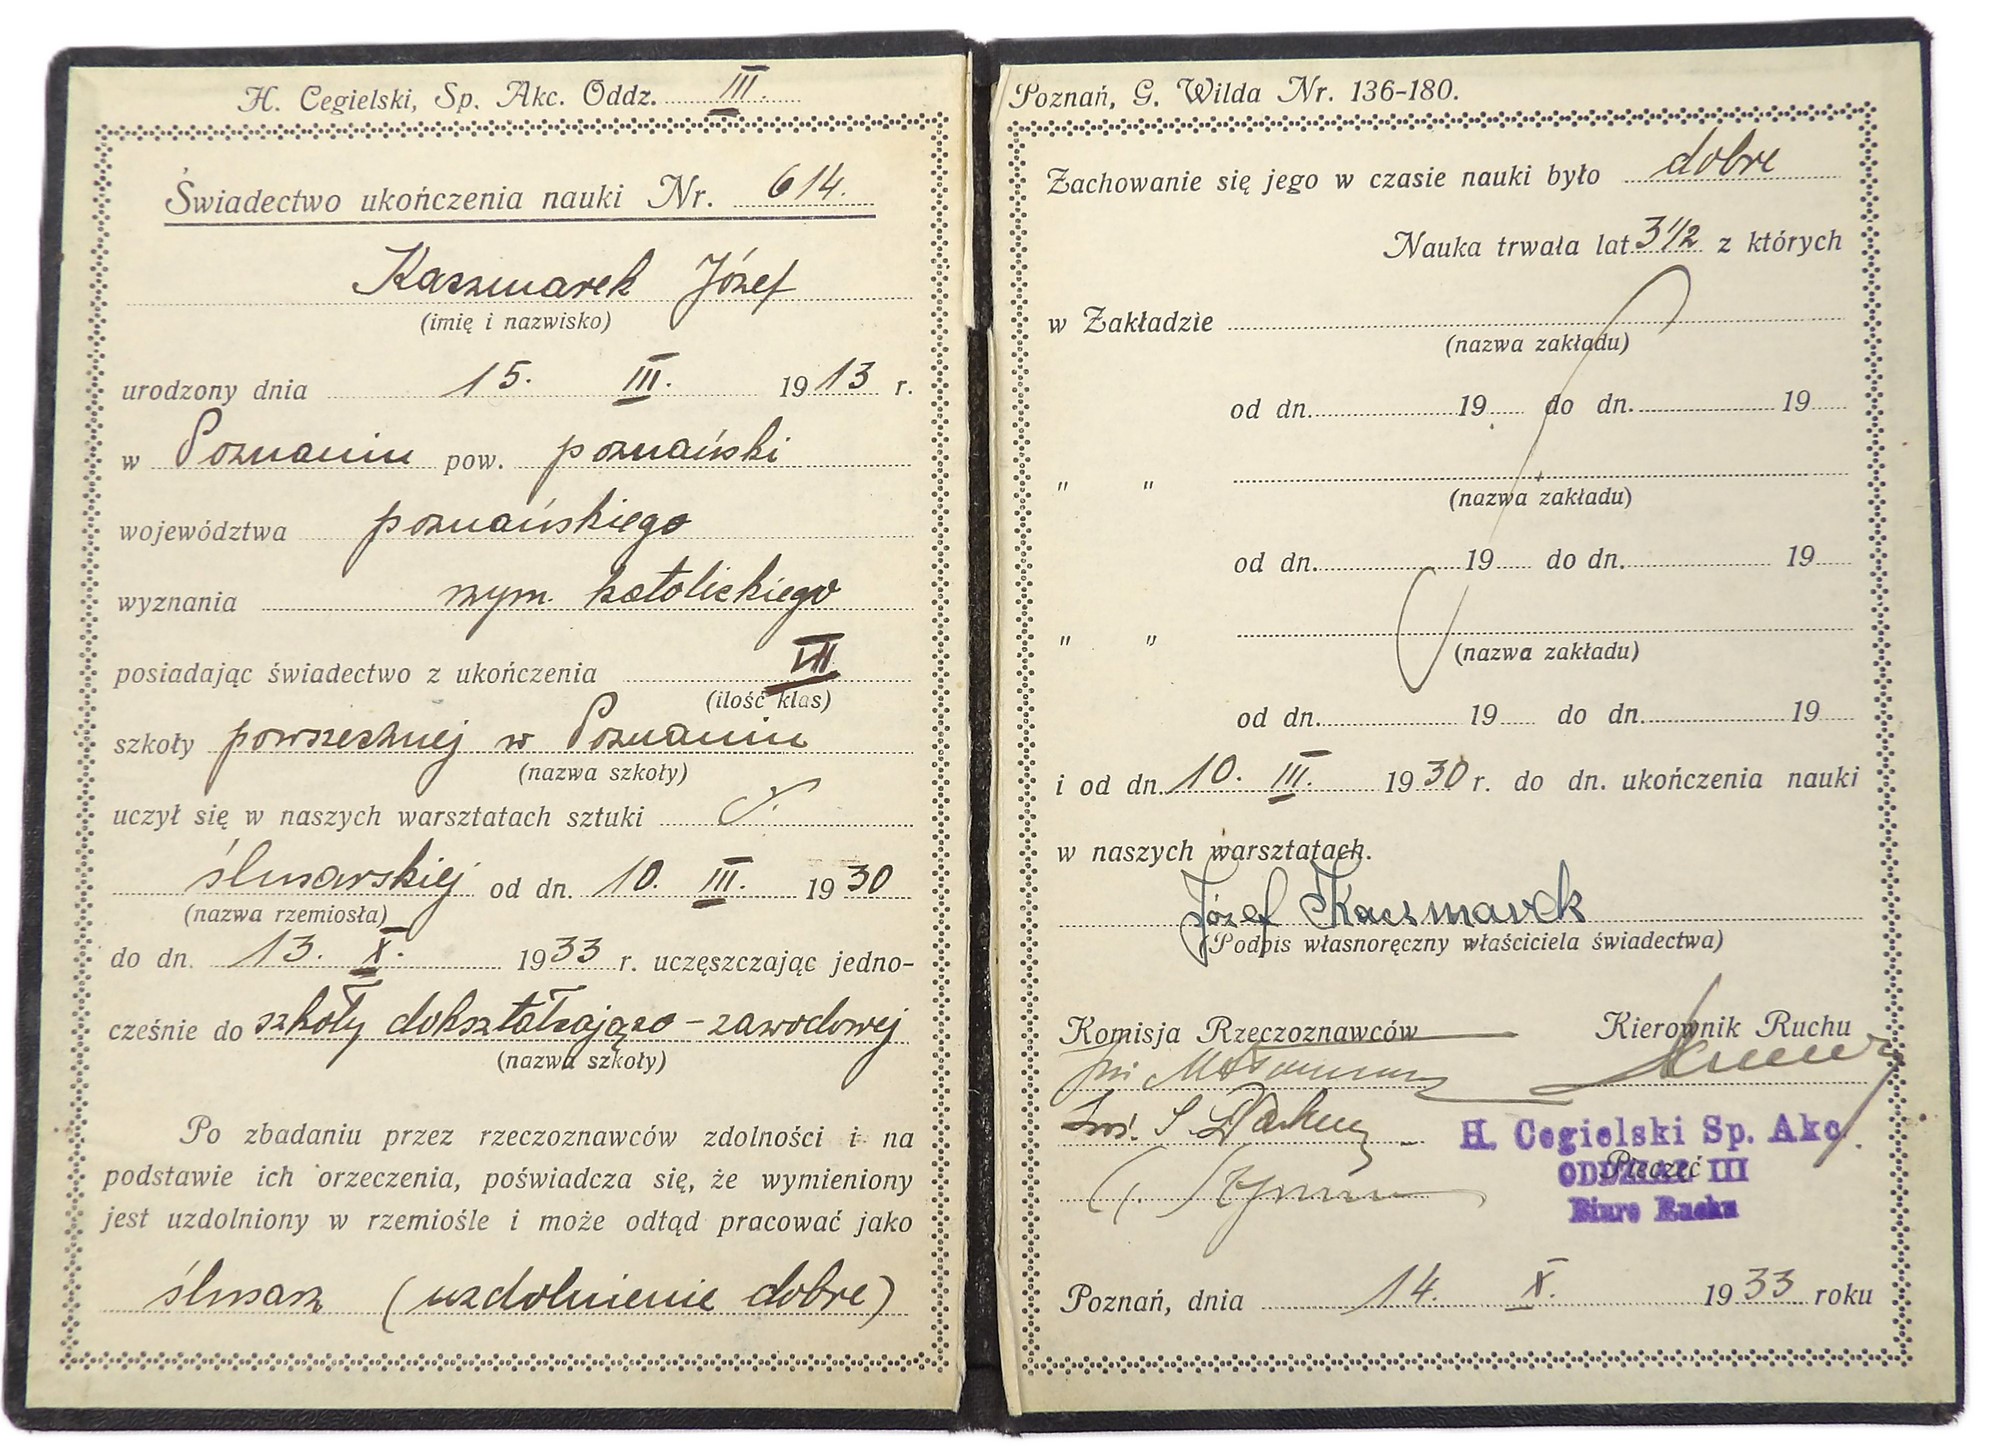 H. Cegielski, Sp. Akc. Oddz. III.
Świadectwo ukończenia nauki Nr. 614.
Kaczmarek Józef
(imię i nazwisko)
urodzony dnia 15. III. 1913 r.
w Poznaniu pow. poznański
województwa poznańskiego
wyznania rzym. katolickiego
posiadając świadectwo z ukończenia VII
(ilość klas)
szkoły powszechnej w Poznaniu
(nazwa szkoły)
uczył się w naszych warsztatach sztuki
ślusarskiej od dn. 10. III. 1930
(nazwa rzemiosła)
do dn. 13. X. 1933 r. uczęszczając jedno-
cześnie do szkoły dokształcająco-zawodowej
(nazwa szkoły)
Po zbadaniu przez rzeczoznawców zdolności i na
podstawie ich orzeczenia, poświadcza się, że wymieniony
jest uzdolniony w rzemiośle i może odtąd pracować jako
ślusarz (uzdolnienie dobre)
Poznań, G. Wilda Nr. 136-180.
Zachowanie się jego w czasie nauki było dobre
Nauka trwała lat 3 1/2 z których
w Zakładzie
(nazwa zakładu)
od dn. 19 do dn. 19
" "
(nazwa zakładu)
od dn. 19 do dn. 19
" "
(nazwa zakładu)
od dn. 19 do dn. 19
i od dn. 10. III. 1930 r. do dn. ukończenia nauki
w naszych warsztatach.
Józef Kaczmarek
(Podpis własnoręczny właściciela świadectwa)
Komisja Rzeczoznawców Kierownik Ruchu
H. Cegielski Sp. Akc.
Pieczęć
ODDZIAŁ III
Biuro Ruchu
Poznań, dnia 14. X. 1933 roku